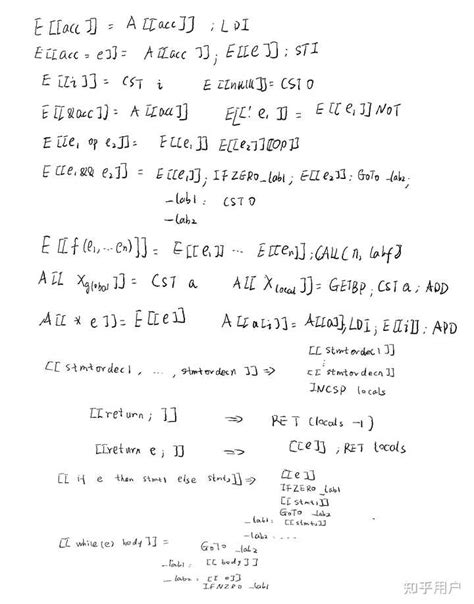 E[[acc]] = A[[acc]] ; LDI
E[[acc = e]] = A[[acc]] ; E[[e]] ; STI
E[[i]] = CST i    E[[null]] = CST 0
E[[&acc]] = A[[acc]]    E[[! e1]] = E[[e1]] NOT
E[[e1 op e2]] = E[[e1]] E[[e2]][[OP]]
E[[e1 && e2]] = E[[e1]] ; IFZERO _lab1 ; E[[e2]] ; GOTO _lab2 ;
_lab1: CST 0
_lab2
E[[f(e1, … en)]] = E[[e1]] … E[[en]] ; CALL(n, labf)
A[[Xglobal]] = CST a    A[[Xlocal]] = GETBP ; CST a ; ADD
A[[* e]] = E[[e]]    A[[a[i]]] = A[[a]], LDI ; E[[i]] ; ADD
[[stmtordec1, …, stmtordecn]] ⇒ [[stmtordec1]]
⋮
[[stmtordecn]]
INCSP locals
[[return ; ]] ⇒ RET (locals -1)
[[return e ; ]] ⇒ [[e]] ; RET locals
[[if e then stmt1 else stmt2]] ⇒ [[e]]
IFZERO _lab1
[[stmt1]]
GOTO _lab2
_lab1: [[stmt2]]
_lab2: ....
[[while(e) body]] = GOTO _lab2
_lab1: [[body]]
_lab2: [[e]]
IFNZERO _lab1
知乎用户